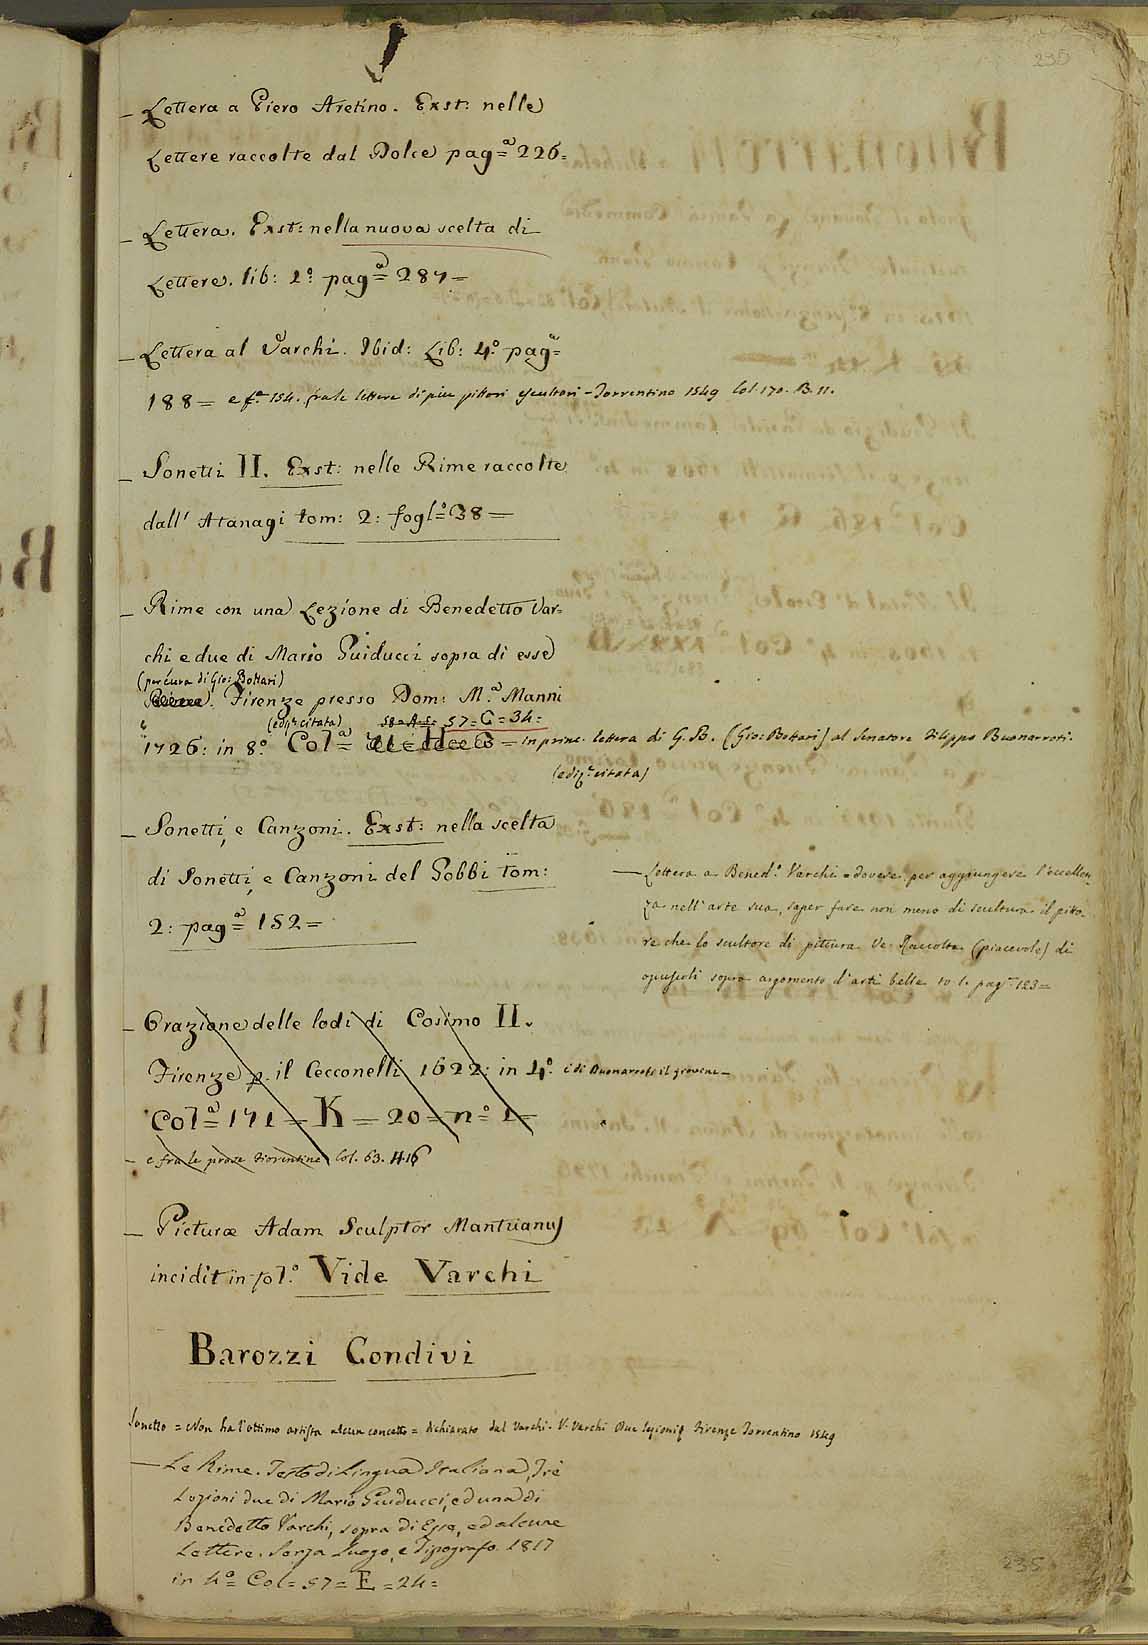 235
– Lettera a Piero Aretino. Exst: nelle
Lettere raccolte dal Dolce pag=ª 226=
– Lettera. Exst: nella nuova scelta di
Lettere. lib: 1º pag=ª 287=
– Lettera al Varchi. Ibid: Lib: 4º pag=ª
188= e fº 154. fra le lettere di piu pittori e scultori – Torrentino 1549 Col. 170. B. 11.
– Sonetti II. Exst: nelle Rime raccolte
dall' Atanagi tom: 2: fogl=º 38=
– Rime con una Lezione di Benedetto Var=
chi e due di Mario Guiducci sopra di esse
(per cura di Gio: Bottari)
Firenze presso Dom: M.ª Manni
(ediz.e citata) 57=C=34=
1726: in 8º Col=ª = in princ. lettera di G. B. (Gio: Bottari) al Senatore Filippo Buonarroti.
(ediz.e citata)
– Sonetti, e Canzoni. Exst: nella scelta
di Sonetti, e Canzoni del Gobbi tom:
2: pag=ª 152=
— Lettera a Bened.º Varchi = dovere per aggiungere l'eccellen
za nell'arte sua, saper fare non meno di scultura il pitto
re che lo scultore di pittura Ve. Raccolta (piacevole) di
opuscoli sopra argomento d'arti belle to 1. pag. 123=
– Orazione delle lodi di Cosimo II.
Firenze p. il Cecconelli 1622: in 4º. è di Buonarroti il giovane –
Col=ª 171 = K = 20 = nº 1=
– e fra le prose Fiorentine Col. 63. H 16
– Picturæ Adam Sculptor Mantuanus
incidit in fol.º Vide Varchi
Barozzi Condivi
Sonetto = Non ha l'ottimo artista alcun concetto = dichiarato dal Varchi. V. Varchi Due lezioni Firenze Torrentino 1549
— Le Rime. Testo di Lingua Italiana, Tre
Lezioni due di Mario Guiducci, ed una di
Benedetto Varchi, sopra di Esse, ed alcune
Lettere. Senza Luogo, e Tipografo. 1817
in 4º= Col= 57= E = 24=
235